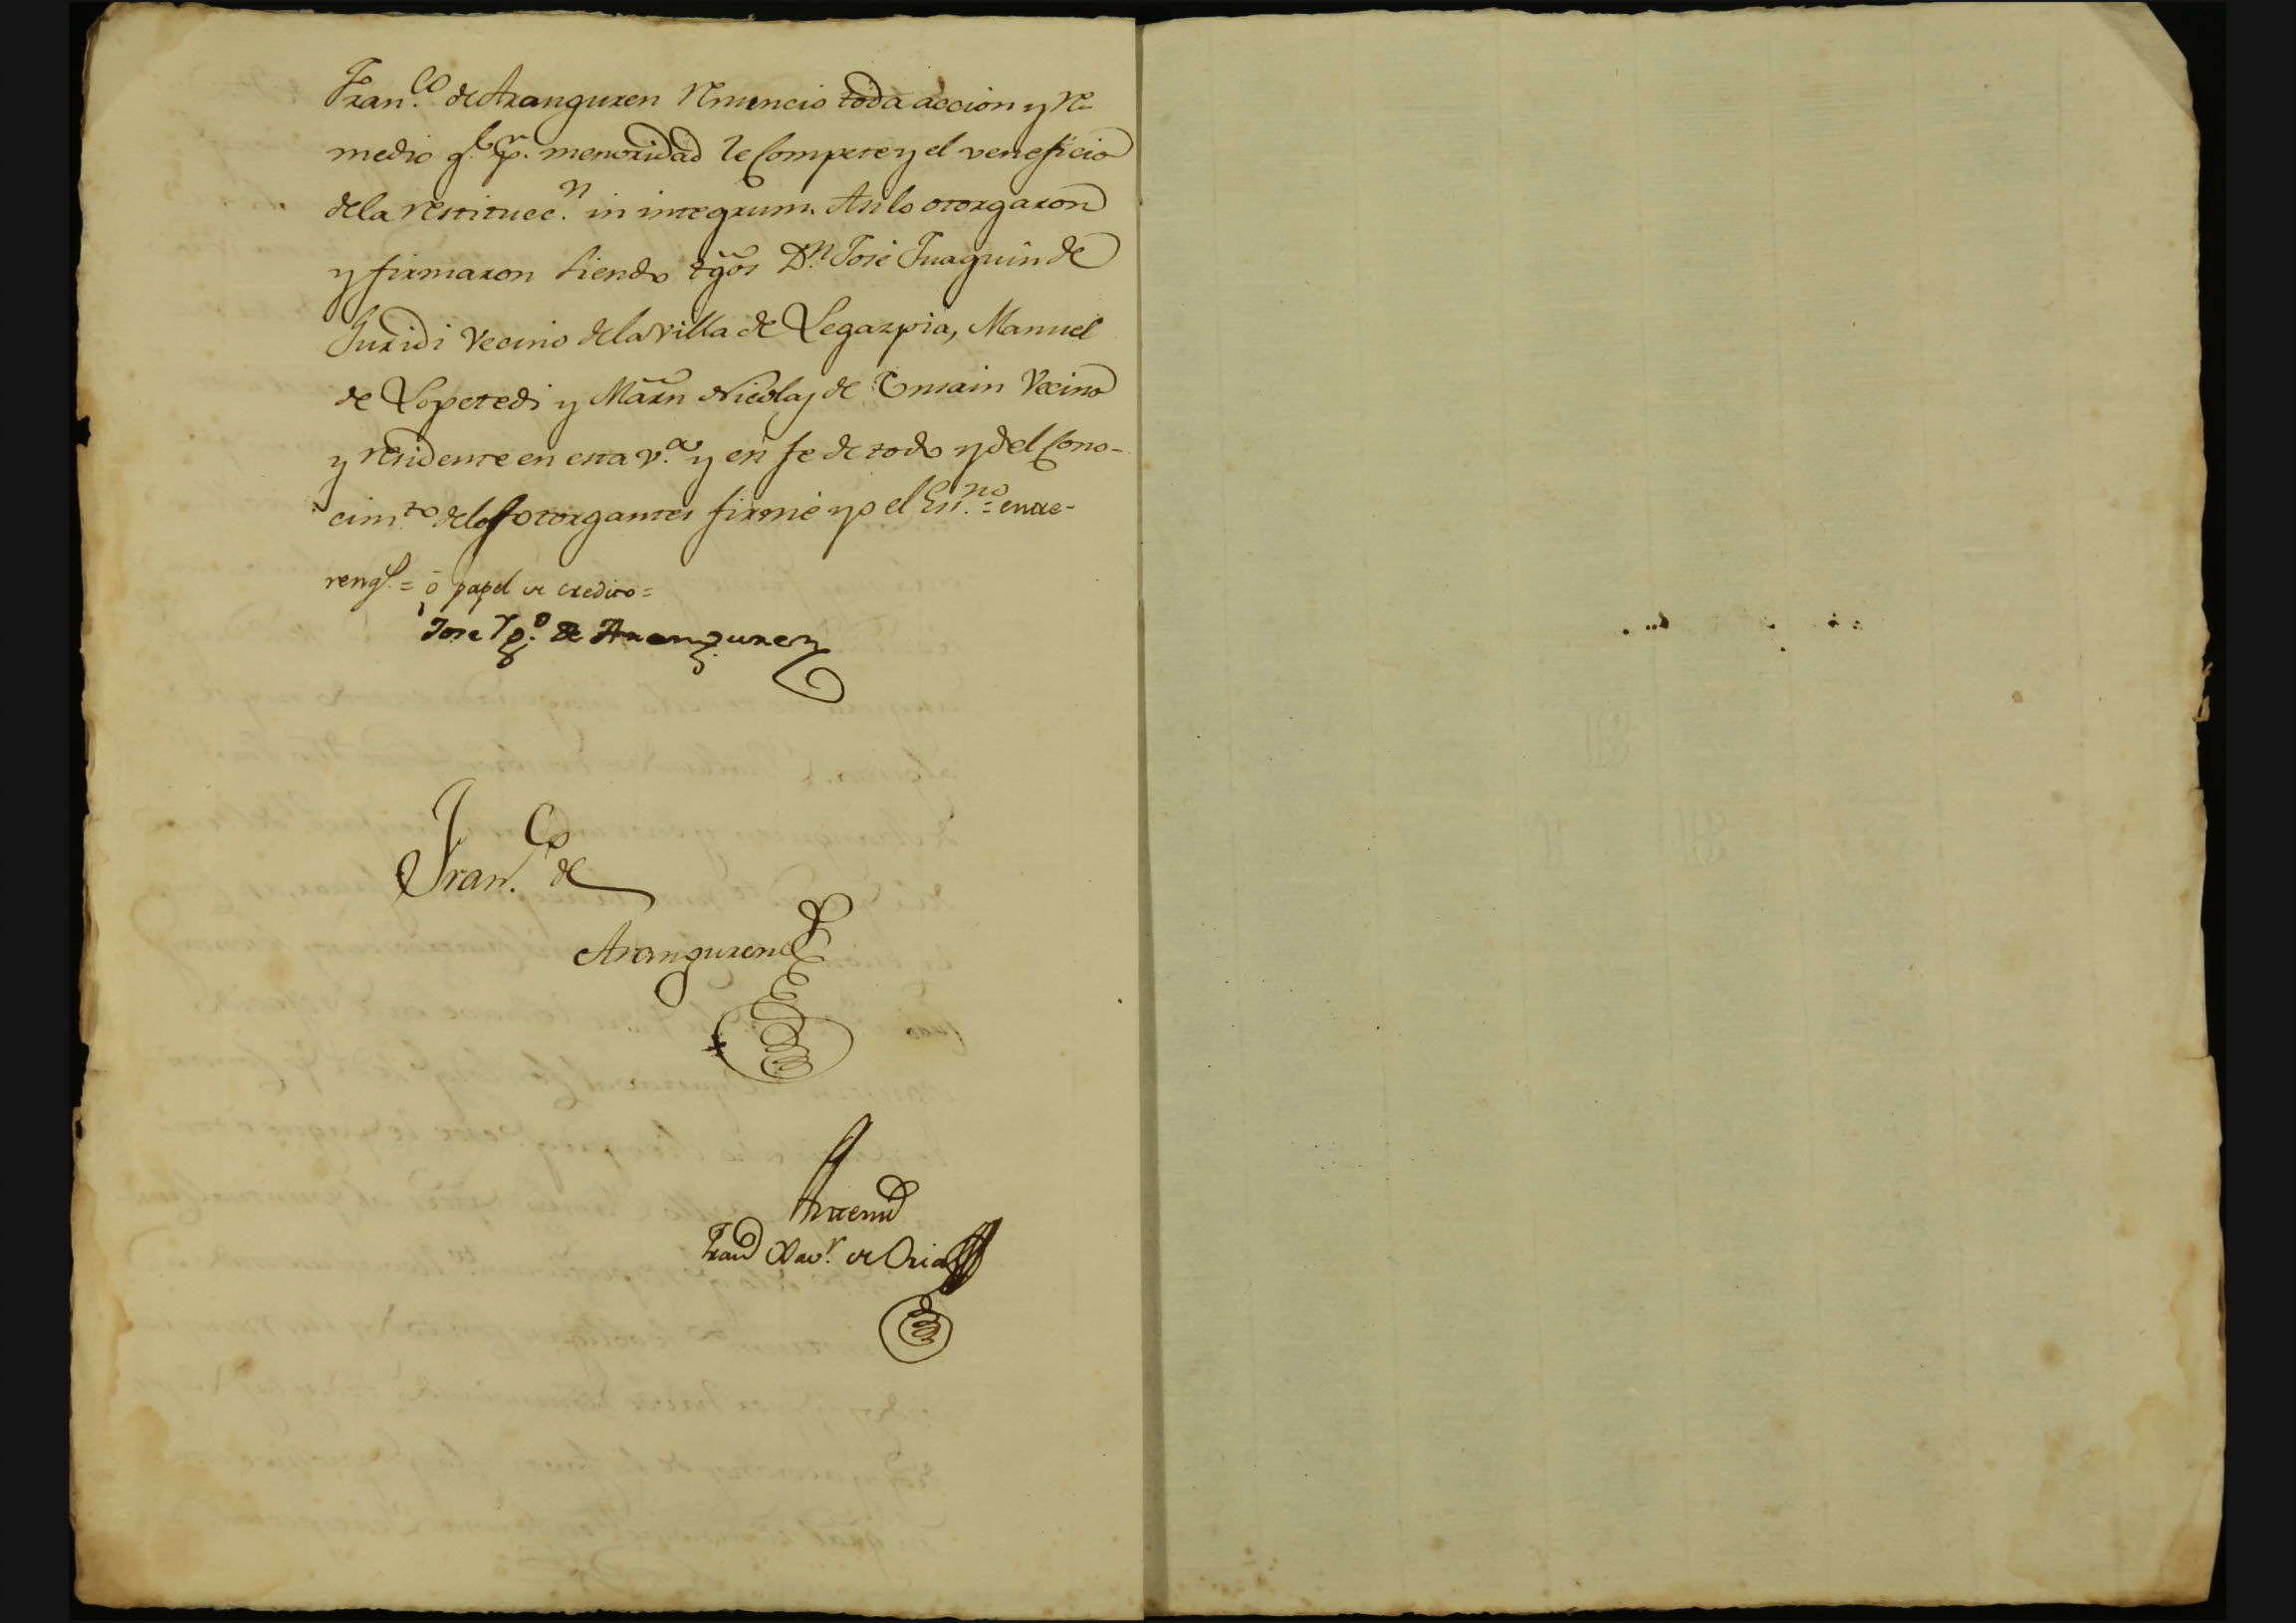 Fran.co de Aranguren renuncio toda accion y re-
medio q.e p.r menoridad le Compete y el veneficio
de la restitucc.n in integrum. Asi lo otorgaron
y firmaron siendo tgõs D.n Jose Juaquin de
Guridi Vecino de la villa de Legazpia, Manuel
de Lopetedi y Mãrn Nicolas de Vecino
y residente en esta v.a y en fe de todo y del Cono-
cim.to de los otorgantes firmé yo el Ess.no = entre-
rengl. = ó papel de credito =
Jose Ig.o de Aranguren
Fran.co de
Aranguren
Antemi
Fran.co Xav.r de Oria